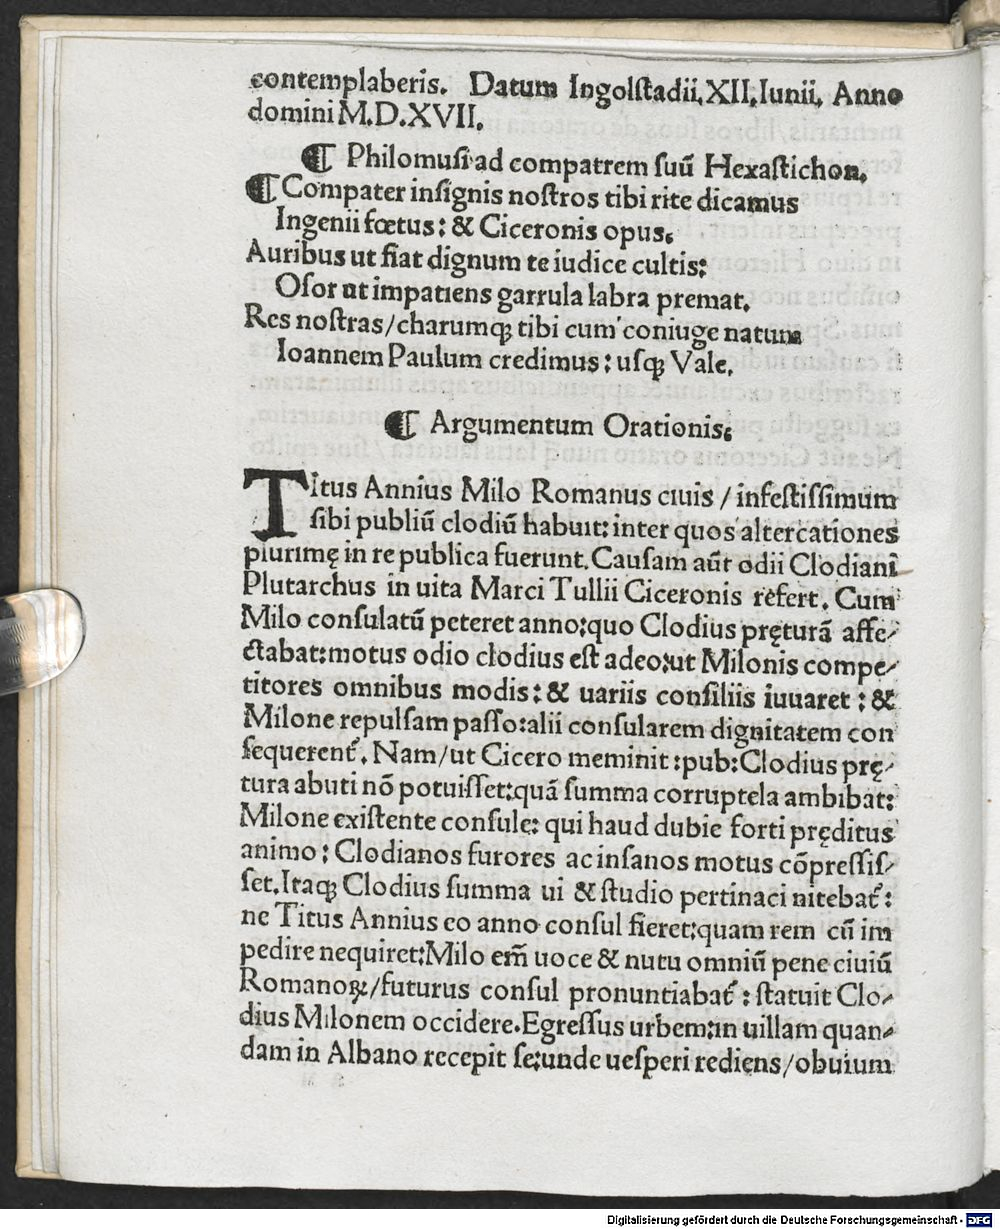 contemplaberis. Datum Ingolſtadii. XII. Iunii. Anno
domini M.D.XVII.
¶ Philomuſi ad compatrem ſuū Hexaſtichon.
¶ Compater inſignis noſtros tibi rite dicamus
Ingenii fœtus: & Ciceronis opus.
Auribus ut fiat dignum te iudice cultis:
Oſor ut impatiens garrula labra premat.
Res noſtras/charumqꝫ tibi cum coniuge natum
Ioannem Paulum credimus: uſqꝫ Vale.
¶ Argumentum Orationis.
TItus Annius Milo Romanus ciuis / infeſtiſſimum
ſibi publiū clodiū habuit: inter quos altercationes
plurimę in re publica fuerunt. Cauſam aūt odii Clodiani
Plutarchus in uita Marci Tullii Ciceronis refert. Cum
Milo conſulatū peteret anno: quo Clodius pręturā affe-
ctabat: motus odio clodius eſt adeo: ut Milonis compe-
titores omnibus modis: & uariis conſiliis iuuaret: &
Milone repulſam paſſo: alii conſularem dignitatem con
ſequerent᷑. Nam/ut Cicero meminit: pub: Clodius prę-
tura abuti nō potuiſſet: quā ſumma corruptela ambibat:
Milone exiſtente conſule: qui haud dubie forti pręditus
animo: Clodianos furores ac inſanos motus cōpreſſiſ-
ſet. Itaqꝫ Clodius ſumma ui & ſtudio pertinaci nitebat᷑:
ne Titus Annius eo anno conſul fieret: quam rem cū im
pedire nequiret: Milo em̄ uoce & nutu omniū pene ciuiū
Romanoꝝ/futurus conſul pronuntiabat᷑: ſtatuit Clo-
dius Milonem occidere. Egreſſus urbem: in uillam quan-
dam in Albano recepit ſe: unde ueſperi rediens/obuium
Digitalisierung gefördert durch die Deutsche Forschungsgemeinschaft - DFG